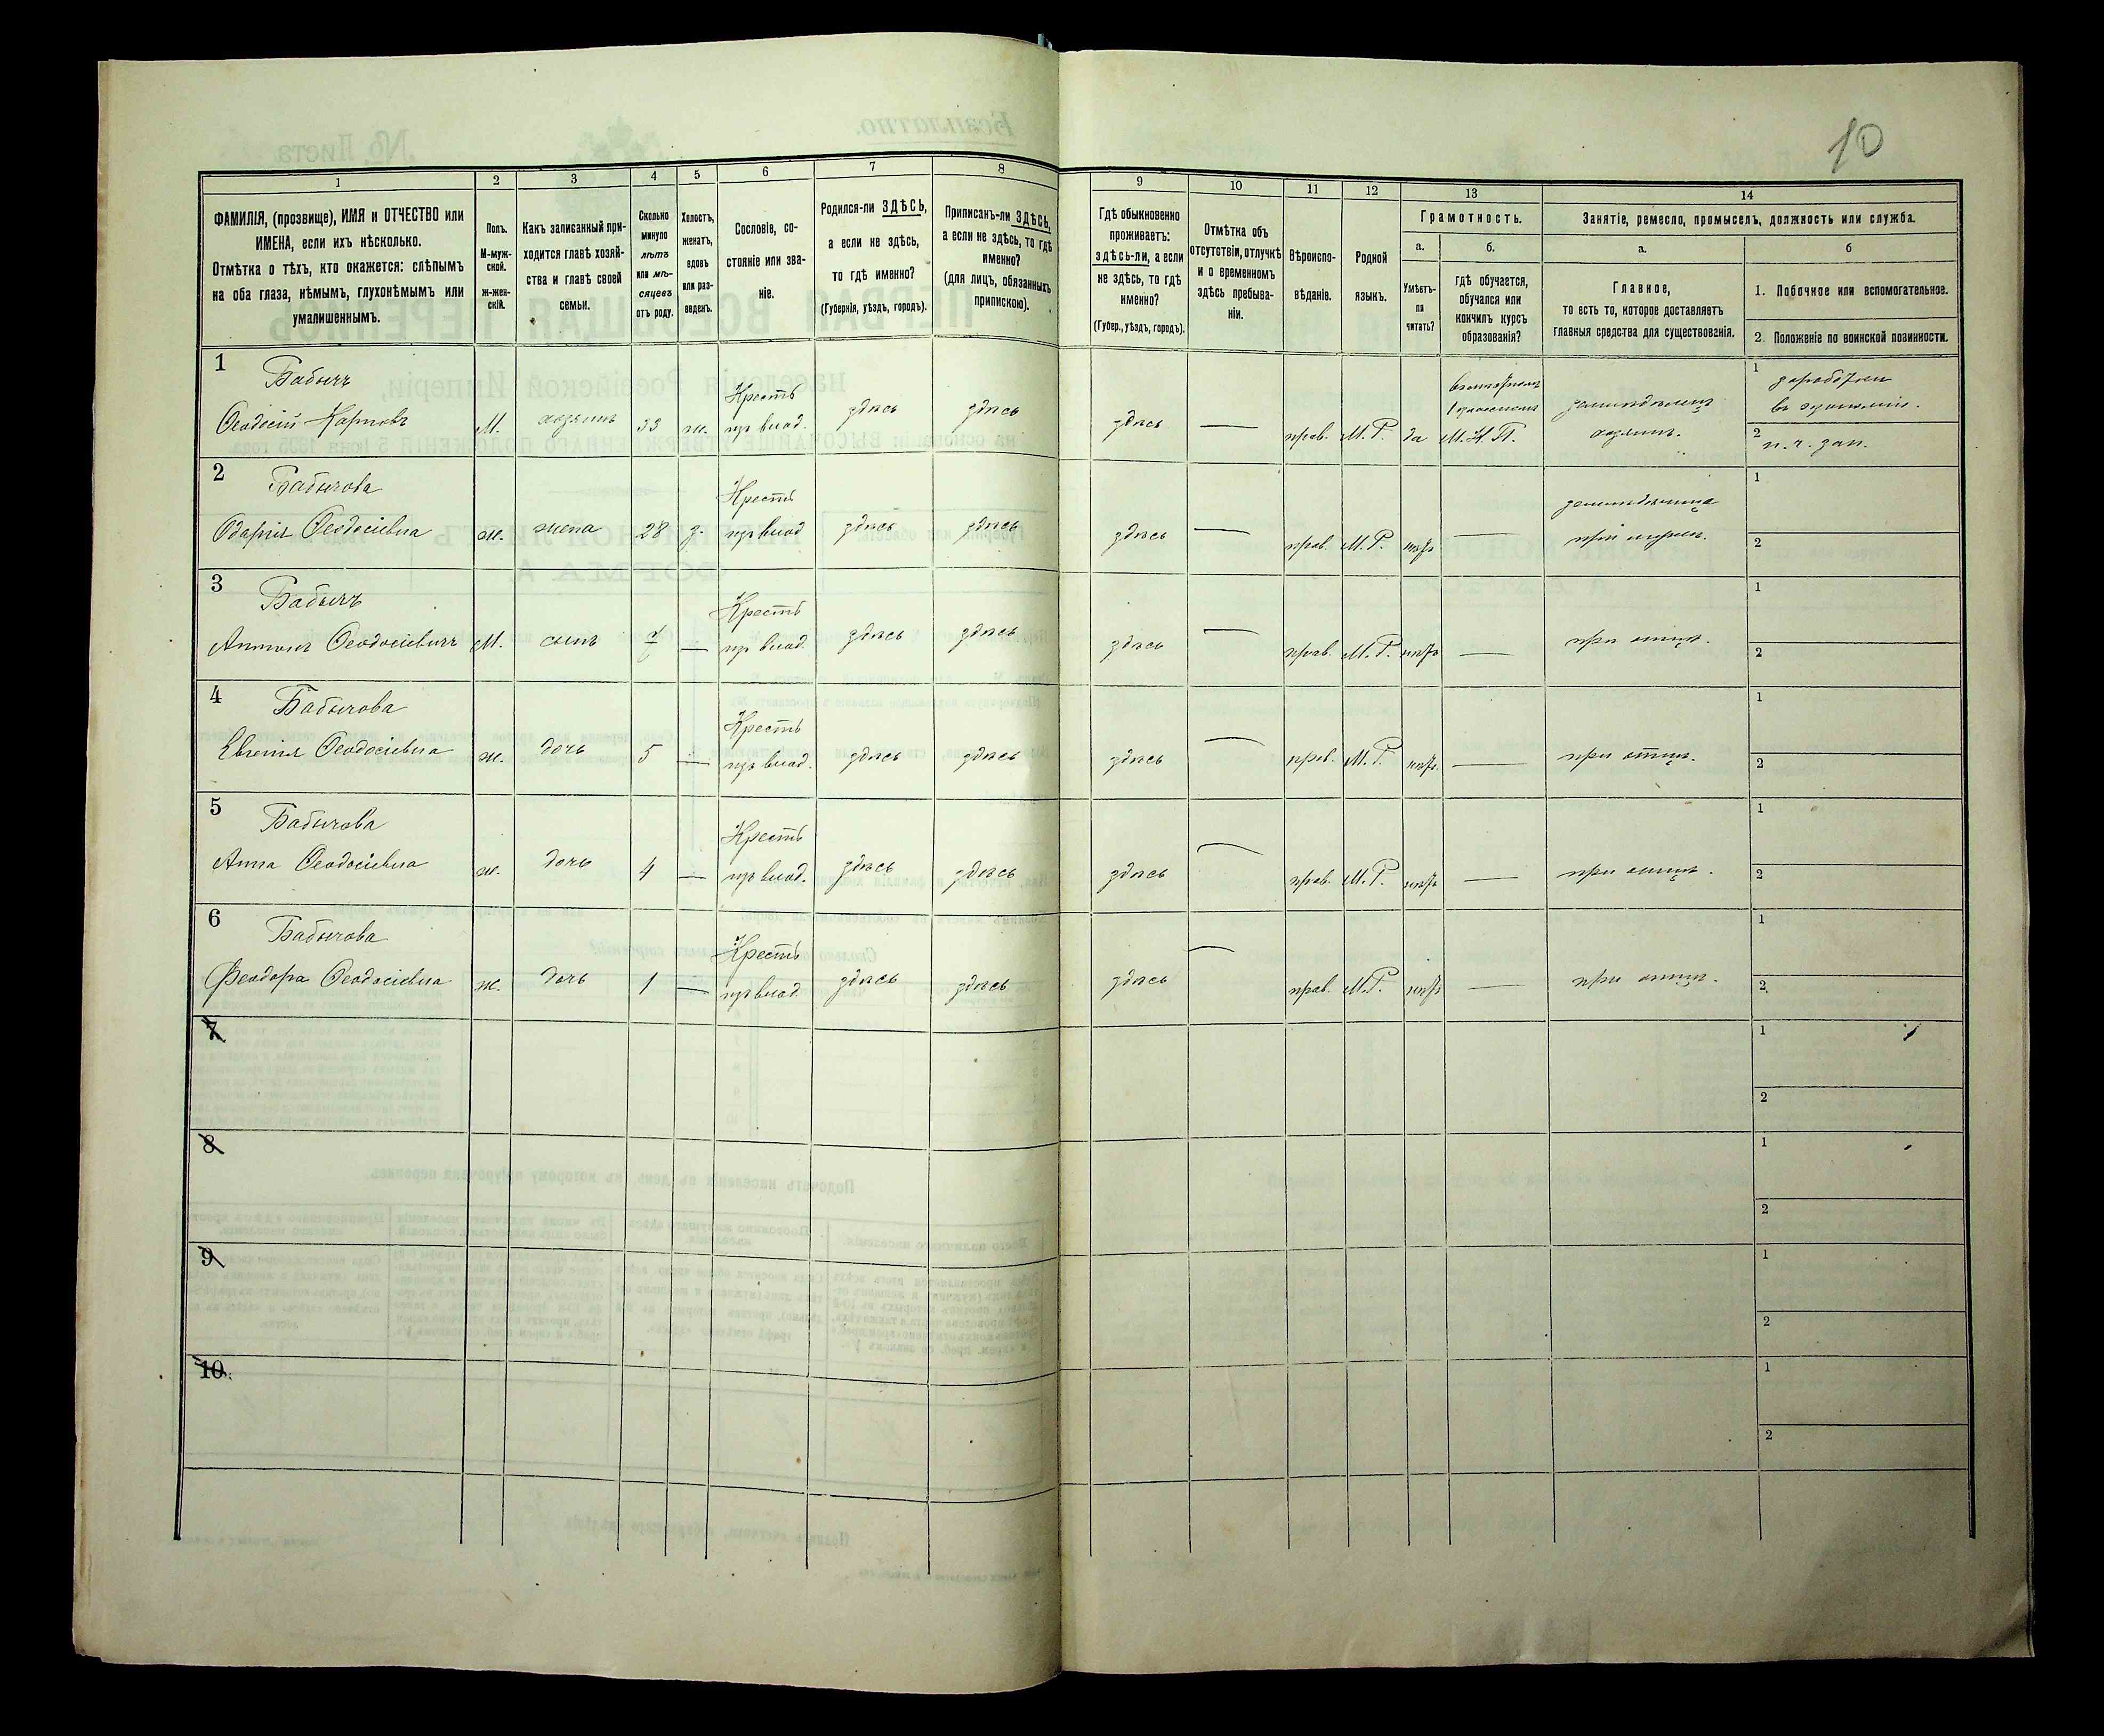 10
1
2
3
4
5
6
7
8
9
10
11
12
13
14
ФАМИЛІЯ, (прозвище), ИМЯ и ОТЧЕСТВО или
ИМЕНА, если ихъ нѣсколько.
Отмѣтка о тѣхъ, кто окажется: слѣпымъ
на оба глаза, нѣмымъ, глухонѣмымъ или
умалишеннымъ.
Полъ.
М-муж-
ской.
ж-жен-
скій.
Какъ записанный при-
ходится главѣ хозяй-
ства и главѣ своей
семьи.
Сколько
минуло
лѣтъ
или мѣ-
сяцевъ
отъ роду.
Холостъ,
женатъ,
вдовъ
или раз-
веденъ.
Сословіе, со-
стояніе или зва-
ніе.
Родился-ли ЗДѢСЬ,
а если не здѣсь,
то гдѣ именно?
(Губернія, уѣздъ, городъ).
Приписанъ-ли ЗДѢСЬ,
а если не здѣсь, то гдѣ
именно?
(для лицъ, обязанныхъ
припискою).
Гдѣ обыкновенно
проживаетъ:
здѣсь-ли, а если
не здѣсь, то гдѣ
именно?
(Губер., уѣздъ, городъ).
Отмѣтка объ
отсутствіи, отлучкѣ
и о временномъ
здѣсь пребыва-
ніи.
Вѣроиспо-
вѣданіе.
Родной
языкъ.
Грамотность.
а.
б.
Умѣетъ-
ли
читать?
Гдѣ обучается,
обучался или
кончилъ курсъ
образованія?
Занятіе, ремесло, промыселъ, должность или служба.
а.
б
Главное,
то есть то, которое доставляетъ
главныя средства для существованія.
1. Побочное или вспомогательное.
2. Положеніе по воинской повинности.
1
Бабычъ
Ѳеодосій Карповъ
М.
хозяинъ
33
ж.
Крестъ
пр влад.
здѣсь
здѣсь
здѣсь
—
прав.
М.Р.
да
М.Н.П.
хозяинъ.
1
2
2
Бабычова
Одарія Ѳеодосіевна
ж.
жена
28
з.
Крестъ
пр влад
здѣсь
здѣсь
здѣсь
—
прав.
М.Р.
нѣтъ
—
при мужѣ.
1
2
3
Бабычъ
Антонъ Ѳеодосіевичъ
М.
сынъ
—
Крестъ
пр влад.
здѣсь
здѣсь
здѣсь
—
прав.
М.Р.
нѣтъ
—
при отцѣ.
1
2
4
Бабычова
Евгенія Ѳеодосіевна
ж.
дочь
5
—
Крестъ
пр влад.
здѣсь
здѣсь
здѣсь
—
прав.
М.Р.
нѣтъ
—
при отцѣ.
1
2
5
Бабычова
Анна Ѳеодосіевна
ж.
дочь
4
—
Крестъ
пр влад.
здѣсь
здѣсь
здѣсь
—
прав.
М.Р.
нѣтъ
—
при отцѣ.
1
2
6
Бабычова
Феодора Ѳеодосіевна
ж.
дочь
1
—
Крестъ
пр влад.
здѣсь
здѣсь
здѣсь
—
прав.
М.Р.
нѣтъ
—
при отцѣ.
1
2
7
1
2
8
1
2
9
1
2
10
1
2